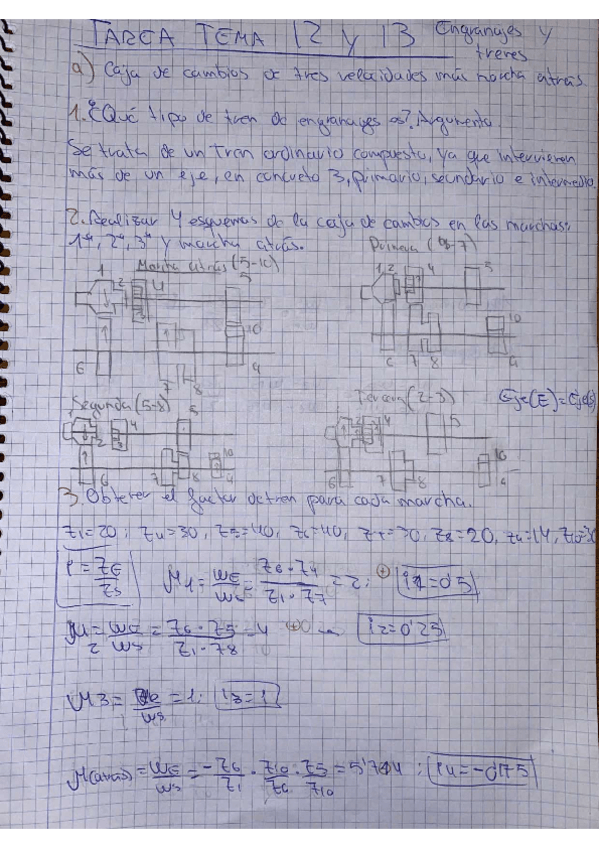 TAREA TEMA 12 y 13 Engranajes y
trenes
a) Caja de cambios de tres velocidades más marcha atrás
1. ¿Qué tipo de tren de engranajes es? Argumenta
Se trata de un tren ordinario compuesto, ya que intervienen
más de un eje, en concreto 3, primario, secundario e intermedio.
2. Realizar 4 esquemas de la caja de cambios en las marchas:
1ª, 2ª, 3ª y marcha atrás.
Primera (4-7)
Marcha atrás (5-10)
1 2 4 5
3
6 7 8 9 10
1 2 4 5
6 7 8 9 10
Segunda (5-8)
Tercera (2-3)
Eje(E)=Eje(S)
1 2 4 5
6 7 8 9 10
1 2 4 5
6 7 8 9 10
3. Obtener el factor de tren para cada marcha.
Z1=20; Z4=30, Z5=40, Z6=40, Z7=30, Z8=20, Z9=14, Z10=30
i = ZE/ZS
M1 = WE/WS = Z6·Z4/Z1·Z7 = 2; i1=0'5
M2 = WE/WS = Z6·Z5/Z1·Z8 = 4 i2=0'25
M3 = WE/WS = 1; i3=1
M(atrás) = WE/WS = -Z6/Z1 · Z10/Z9 · Z5/Z10 = 5'714; i4=-0'175